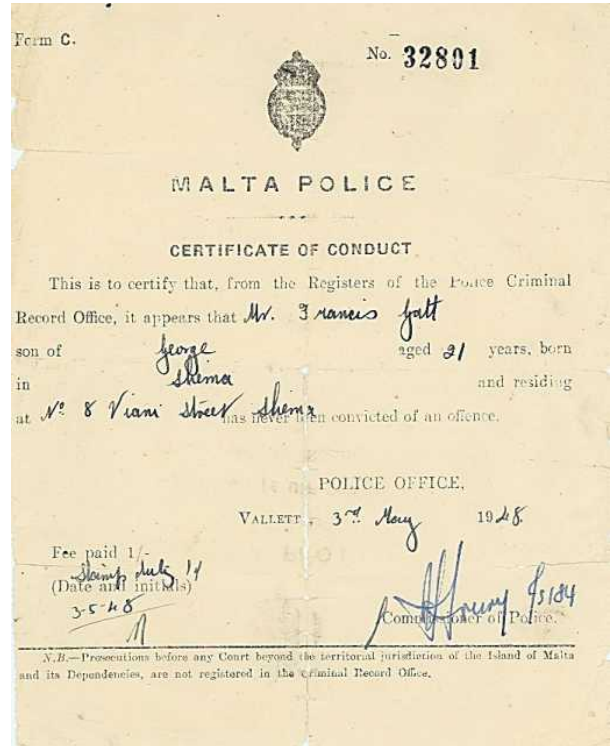 Form C.
No. 32801
MALTA POLICE
CERTIFICATE OF CONDUCT
This is to certify that, from the Registers of the Police Criminal
Record Office, it appears that Mr. Francis Galt
son of George aged 21 years, born
in Sliema and residing
at No. 8 Viani Street Sliema has never been convicted of an offence.
POLICE OFFICE,
VALLETTA, 3rd May 1948.
Fee paid 1/-
Stamp duty
(Date and initials)
3-5-48
Commissioner of Police.
N.B.—Prosecutions before any Court beyond the territorial jurisdiction of the Island of Malta
and its Dependencies, are not registered in the Criminal Record Office.